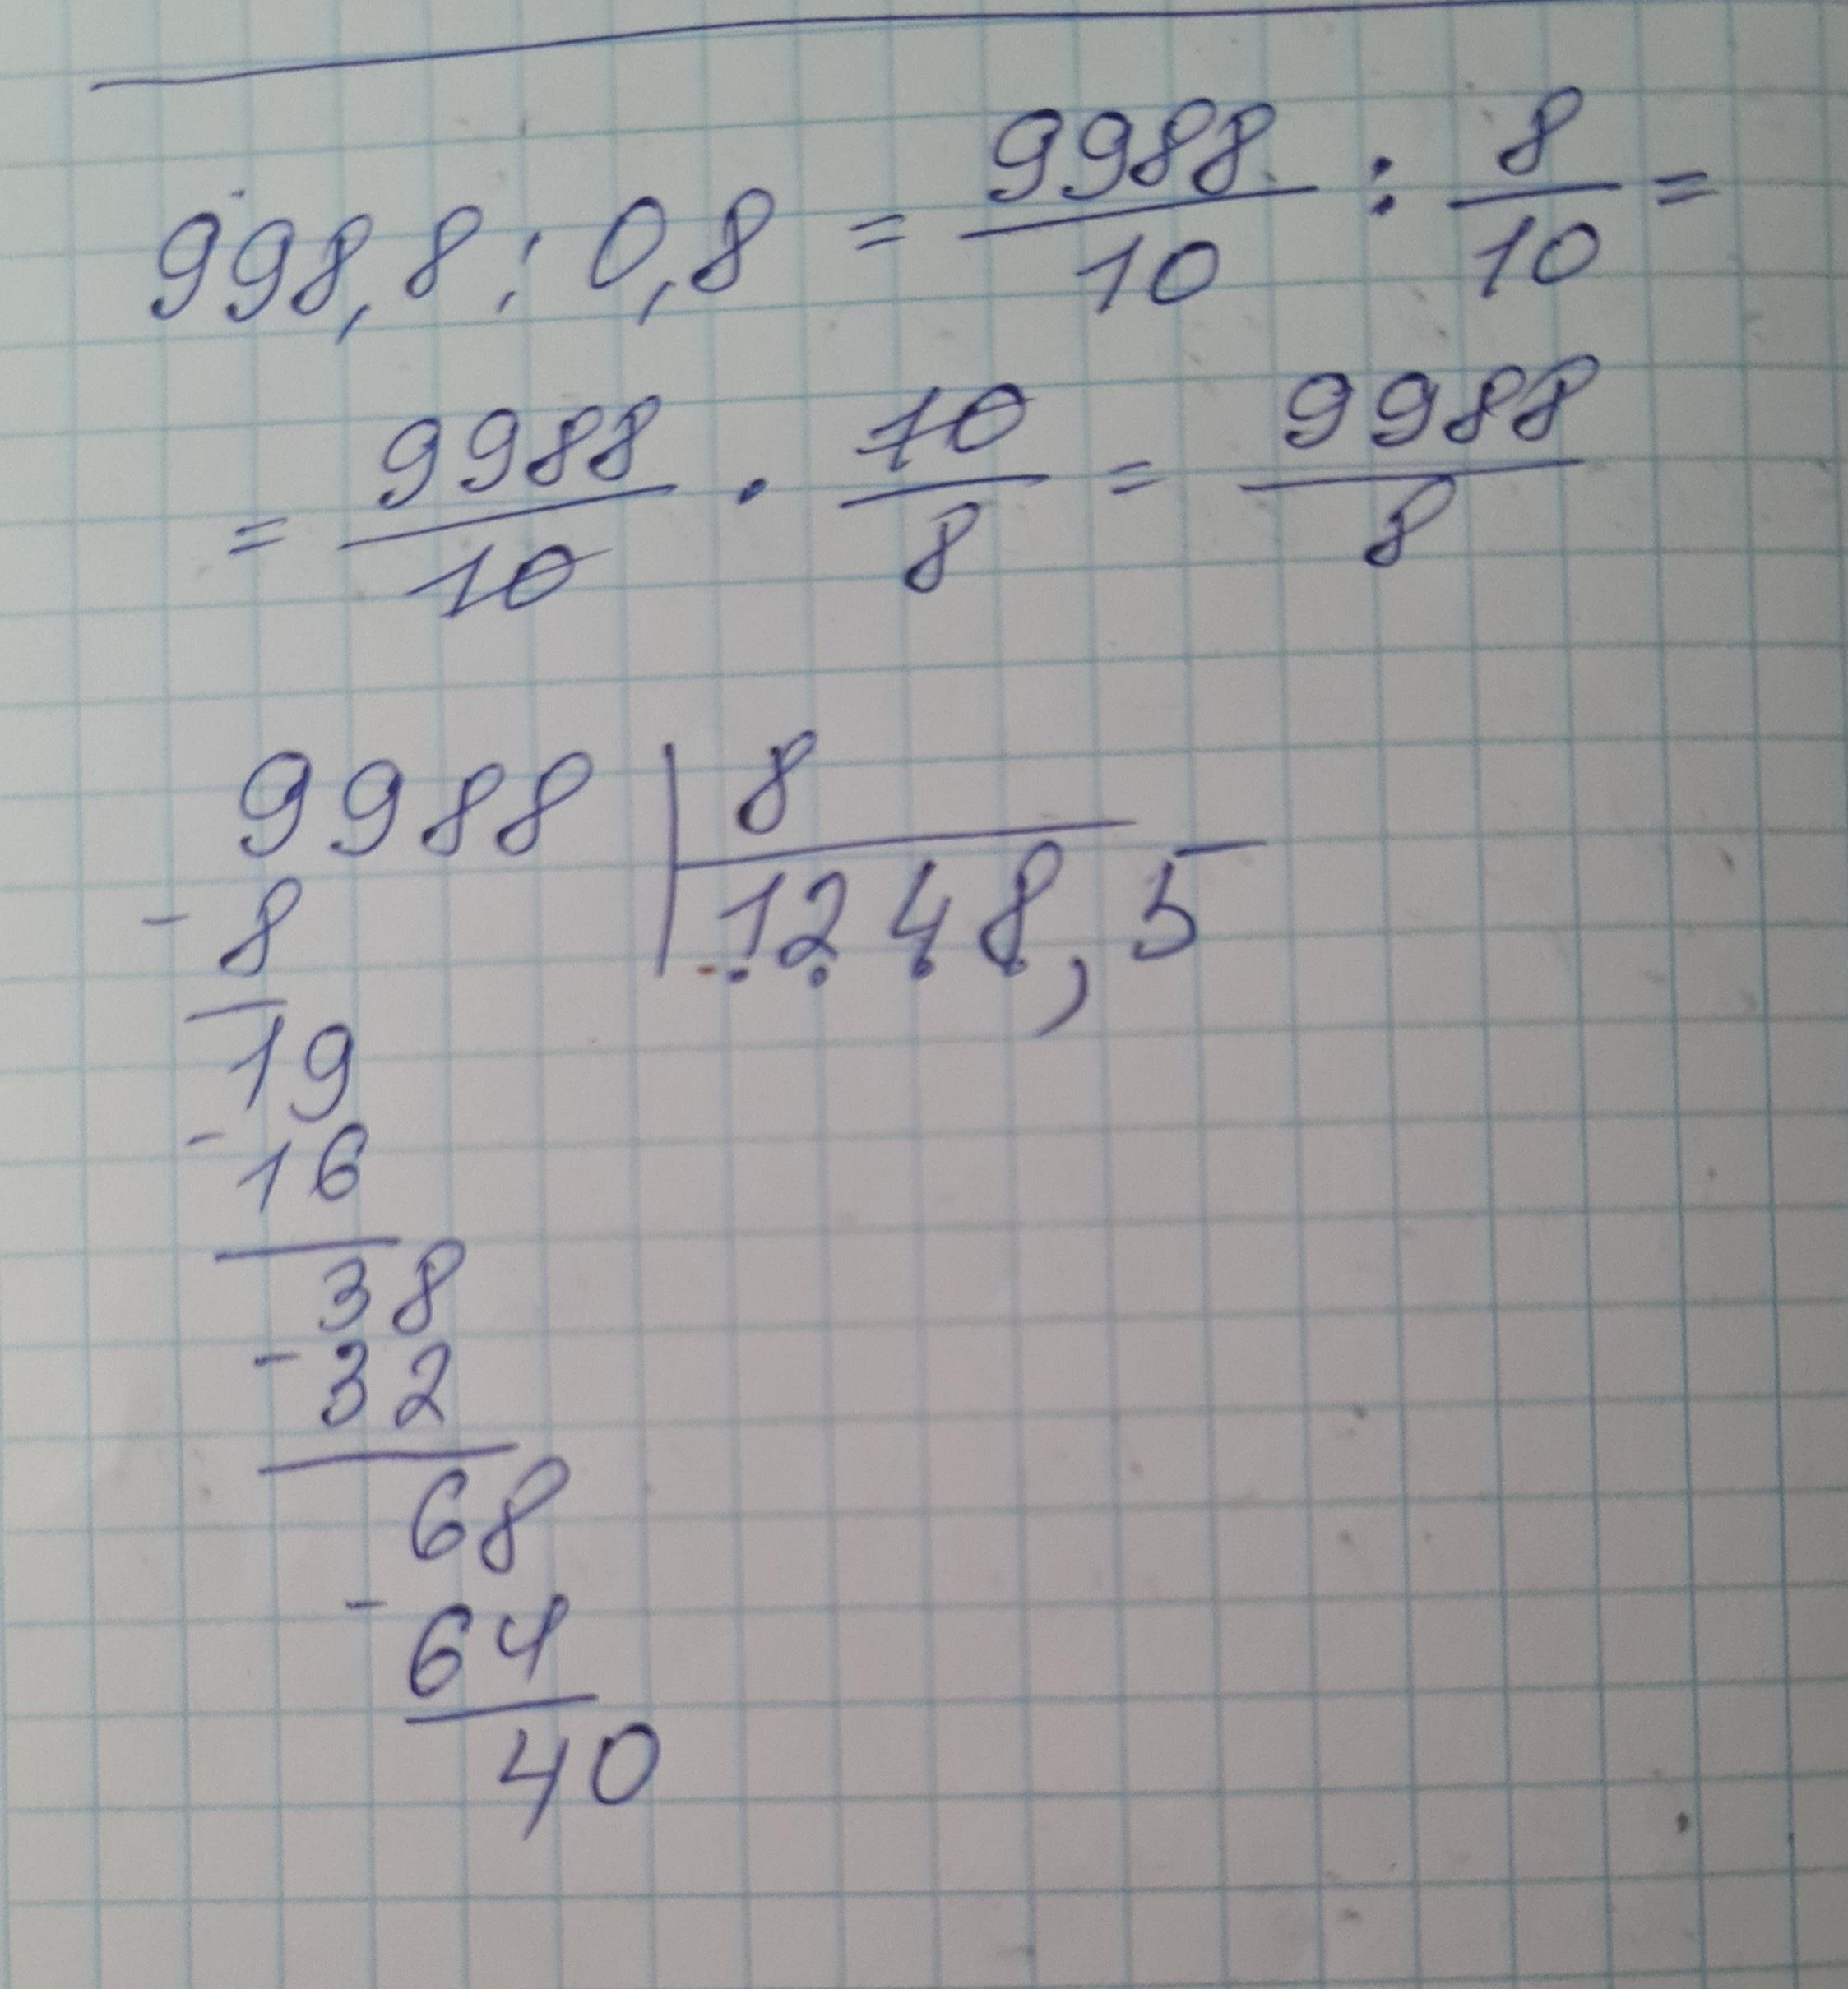 998,8 : 0,8 = 9988/10 : 8/10 =
= 9988/10 · 10/8 = 9988/8
9988 | 8
- 8 | 1248,5
19
- 16
38
- 32
68
- 64
40